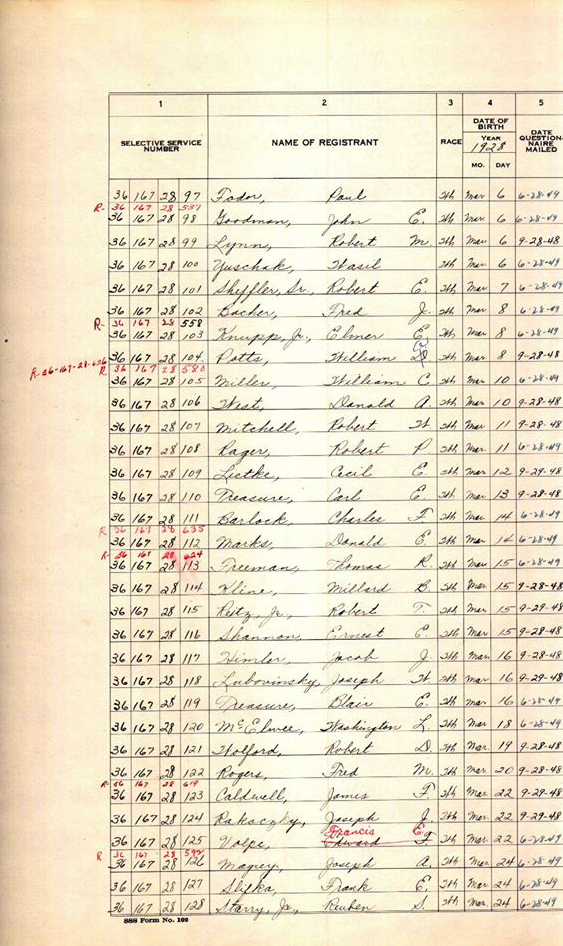 1 2 3 4 5
SELECTIVE SERVICE NUMBER NAME OF REGISTRANT RACE DATE OF BIRTH YEAR 1928 MO. DAY DATE QUESTION- NAIRE MAILED
36 167 28 97 Fodor, Paul Wh Mar 6 6-28-49
R- 36 167 28 537
36 167 28 98 Goodman, John E. Wh Mar 6 6-28-49
36 167 28 99 Lynn, Robert M. Wh Mar 6 9-28-48
36 167 28 100 Yuschak, Wasil Wh Mar 6 6-28-49
36 167 28 101 Sheffler, Sr., Robert E. Wh Mar 7 6-28-49
36 167 28 102 Bacher, Fred J. Wh Mar 8 6-28-49
R- 36 167 28 558
36 167 28 103 Knupp, Jr., Elmer E. Wh Mar 8 6-28-49
36 167 28 104 Potts, William Wh Mar 8 9-28-48
R 36 167 28 580
36 167 28 105 Miller, William C. Wh Mar 10 6-28-49
36 167 28 106 West, Donald A. Wh Mar 10 9-28-48
36 167 28 107 Mitchell, Robert W. Wh Mar 11 9-28-48
36 167 28 108 Rager, Robert P. Wh Mar 11 6-28-49
36 167 28 109 Lietke, Cecil E. Wh Mar 12 9-29-48
36 167 28 110 Treasure, Carl E. Wh Mar 13 9-28-48
36 167 28 111 Barlock, Charles F. Wh Mar 14 6-28-49
R 36 167 28 635
36 167 28 112 Marks, Donald E. Wh Mar 14 6-28-49
R- 36 167 28 624
36 167 28 113 Freeman, Thomas R. Wh Mar 15 6-28-49
36 167 28 114 Kline, Millard B. Wh Mar 15 9-28-48
36 167 28 115 Reitz, Jr., Robert T. Wh Mar. 15 9-29-48
36 167 28 116 Shannon, Ernest E. Wh Mar. 15 9-28-48
36 167 28 117 Himler, Jacob J. Wh Mar. 16 9-28-48
36 167 28 118 Lubovinsky, Joseph W. Wh Mar. 16 9-29-48
36 167 28 119 Treasure, Blair E. Wh Mar. 16 6-28-49
36 167 28 120 McElwee, Washington L. Wh Mar. 18 6-28-49
36 167 28 121 Wolford, Robert D. Wh Mar. 19 9-28-48
36 167 28 122 Rogers, Fred M. Wh Mar. 20 9-28-48
R- 36 167 28
36 167 28 123 Caldwell, James F. Wh Mar. 22 9-29-48
36 167 28 124 Rakaczky, Joseph J. Wh Mar. 22 9-29-48
Francis E.
36 167 28 125 Volpe, Edward F. Wh Mar. 22 6-28-49
R 36 167 28
36 167 28 126 Joseph A. Wh Mar. 24 6-28-49
36 167 28 127 Slifka, Frank E. Wh Mar. 24 6-28-49
36 167 28 128 Starry, Jr., Reuben S. Wh Mar. 24 6-28-49
SSS Form No. 102